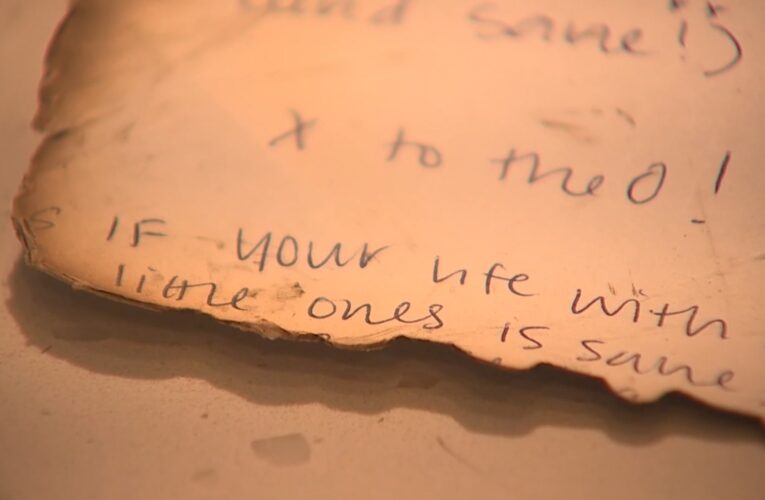 sane!
x to the O!
IF your life with
little ones is sane